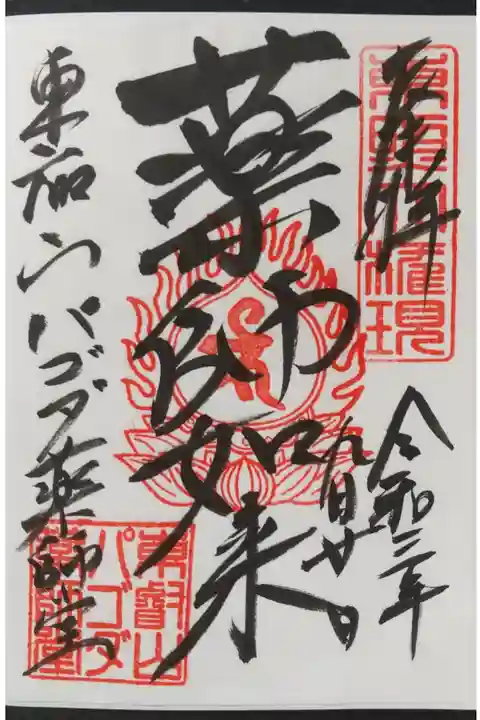 奉拝
東照大権現
令和三年
九月廿一日
薬師如来
東叡山パゴダ薬師堂
東叡山
パゴダ
薬師堂